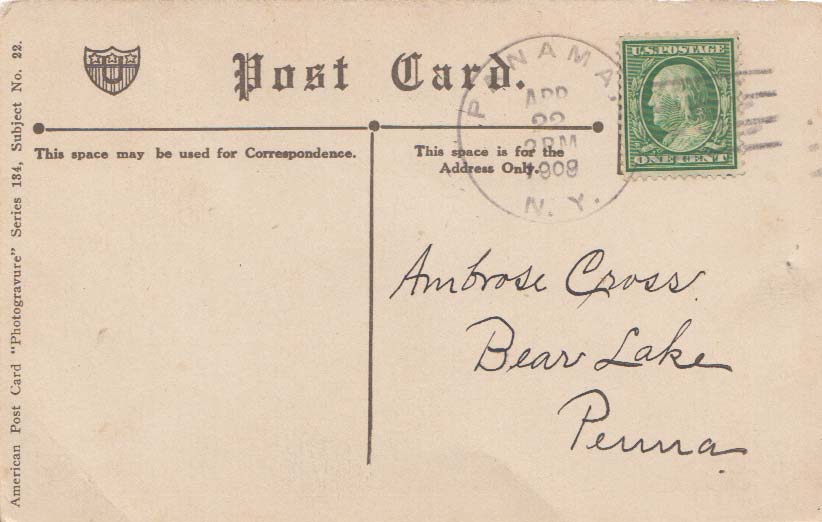 Post Card.
This space may be used for Correspondence.
This space is for the
Address Only.
American Post Card "Photogravure" Series 134, Subject No. 22.
U
PANAMA,
APR
22
2 PM
1909
N.Y.
U.S. POSTAGE
ONE CENT
Ambrose Cross
Bear Lake
Penna